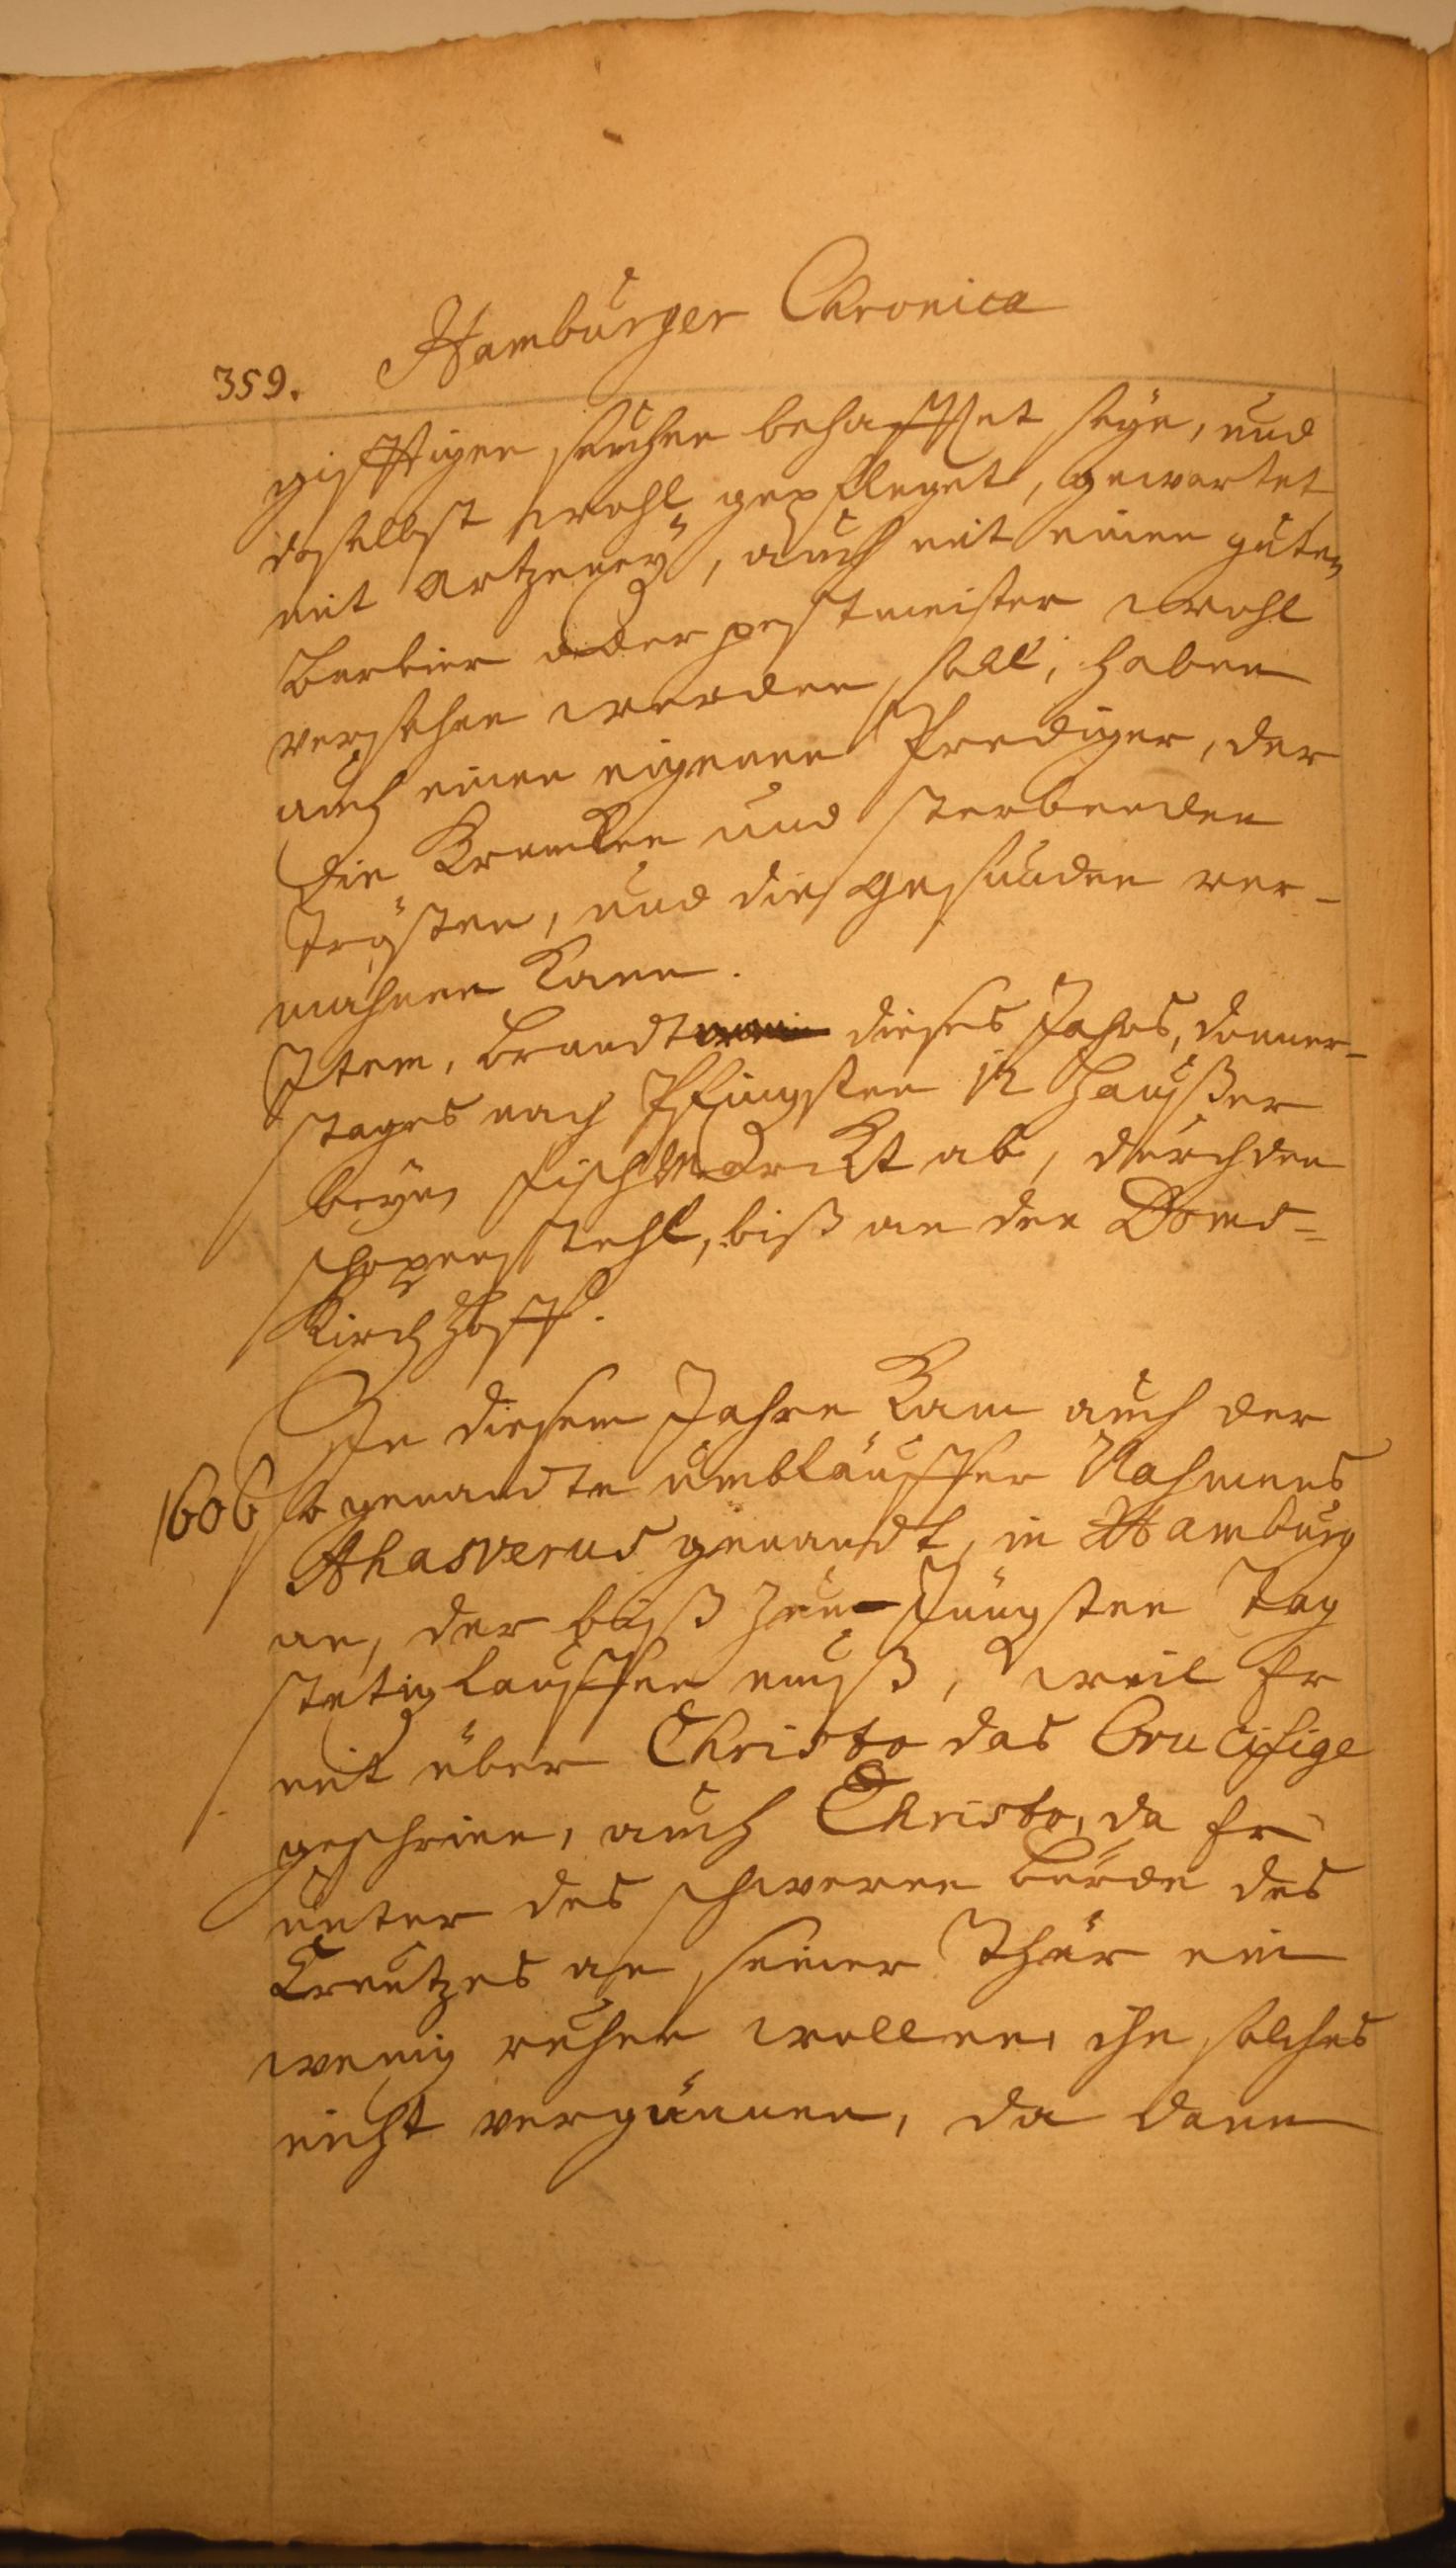 Hamburger Chronica
359.
gifftigen seuchen behafftet seyn, und
daselbst wohl gepfleget, gewartet
mit artzeney, auch mit einen guten
Barbier oder pestmeister wohl
versehen werden soll, haben
auch einen eigenen Prediger, der
die Krancken und sterbenden
trösten, und die gesunden ver-
mahnen kann.
Item, brandten dieses Jahrs, donner-
stages nach Pfingsten 12 Häußer
beym Fischmarckt ab, durch den
schopenstehl, biß an den Doms=
Kirchhoff.
In diesem Jahre kam auch der
1606 so genandte umbläuffer Nahmens
Ahasverus genandt, in Hamburg
an, der biß zum Jüngsten Tag
stetig lauffen muß, weil Er
mit über Christo das Crucifige
geschrien, auch Christo, da Er
unter des schweren bürde des
Creutzes an seiner Thür ein
wenig ruhen wollen, ihn solches
nicht vergünnen, da dann